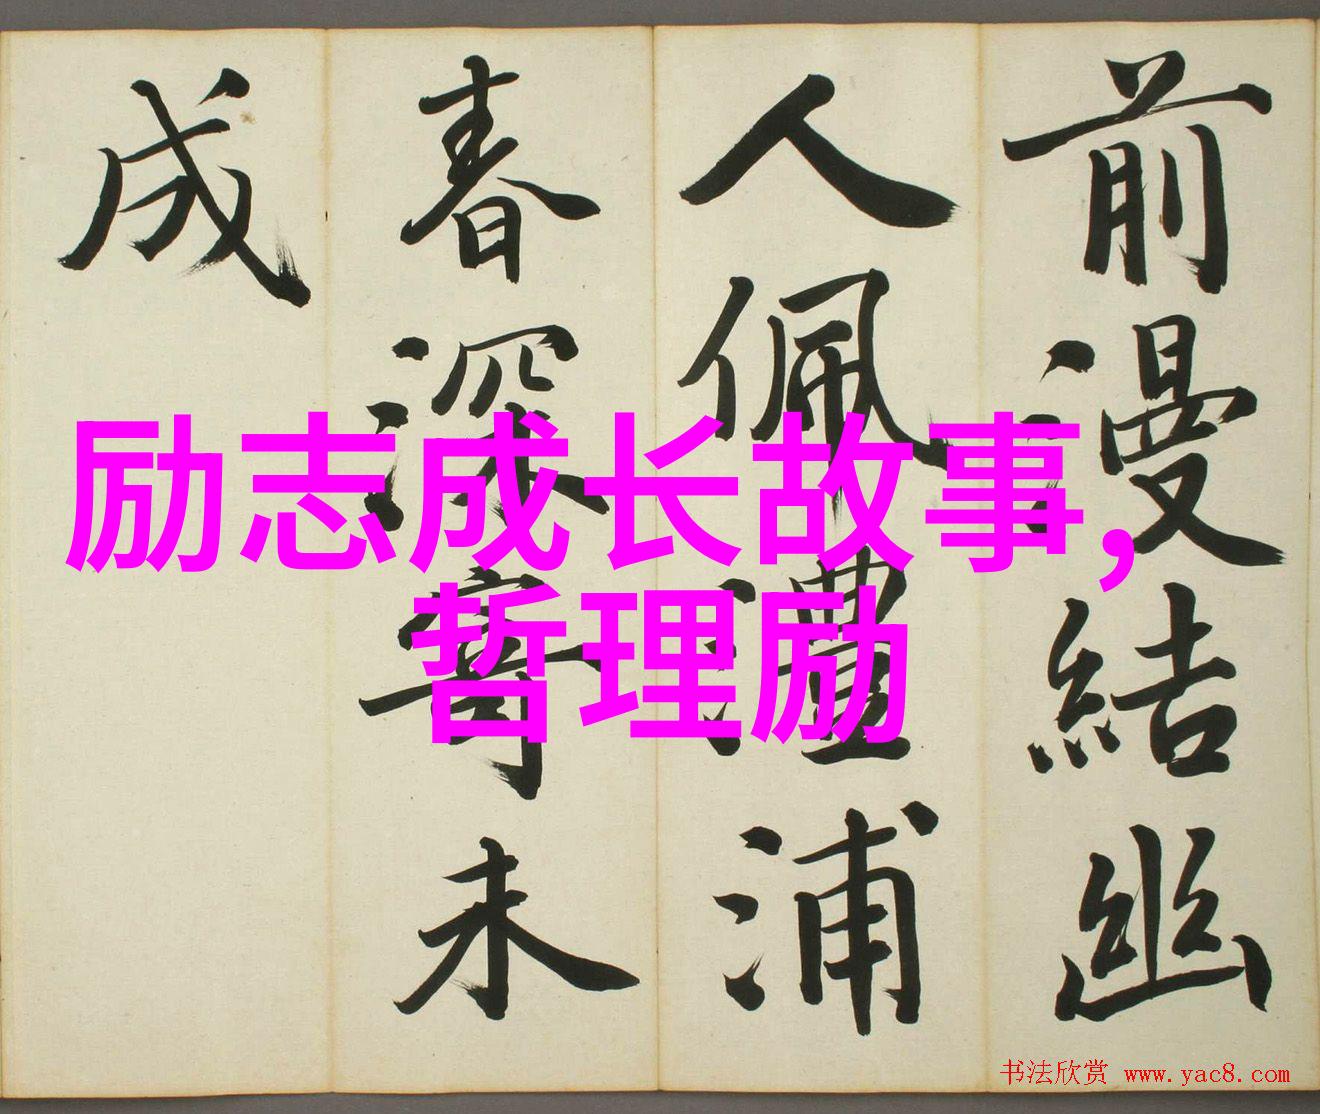 前漫結幽
人佩澧浦
春深寄未
成
励志成长故事,
哲理励
书法欣赏 www.yac8.com